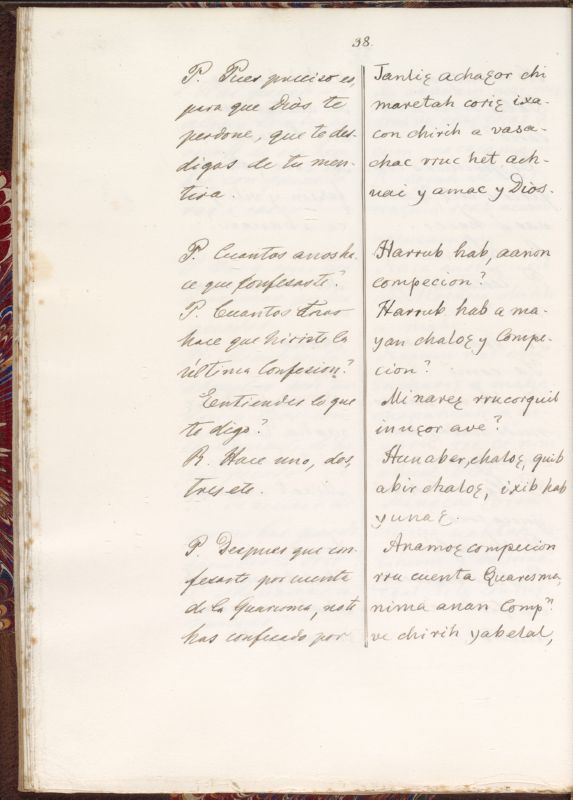 38.
P. Pues preciso es,
para que Dios te
perdone, que te des-
digas de tu men-
tira.
P. Cuantos anos ha-
ce que confesaste?
P. Cuantos
hace que hiciste la
última Confesion?
Eentiendes lo que
te digo?
R. Hace uno, dos,
tres etc.
P. Despues que con-
fesaste por cuenta
de la Quaresma, note
has confesado por
Janliꜫ achaꜫor chi
maretah coriꜫ ixa-
con chirih a vasa-
chac rruc het ach-
nai y amac y Dios.
Harrub hab, aanon
compecion?
Harrub hab a ma-
yan chaloꜫ y Compe-
cion?
Mi nareꜫ rrucorquib
inuꜫor ave?
Hunaber, chaloꜫ, quib
abir chaloꜫ, ixib hab
yunaꜫ.
Anamoꜫ compecion
rru cuenta Quaresma,
nima anan Compⁿ.
ve chirih yabelal,